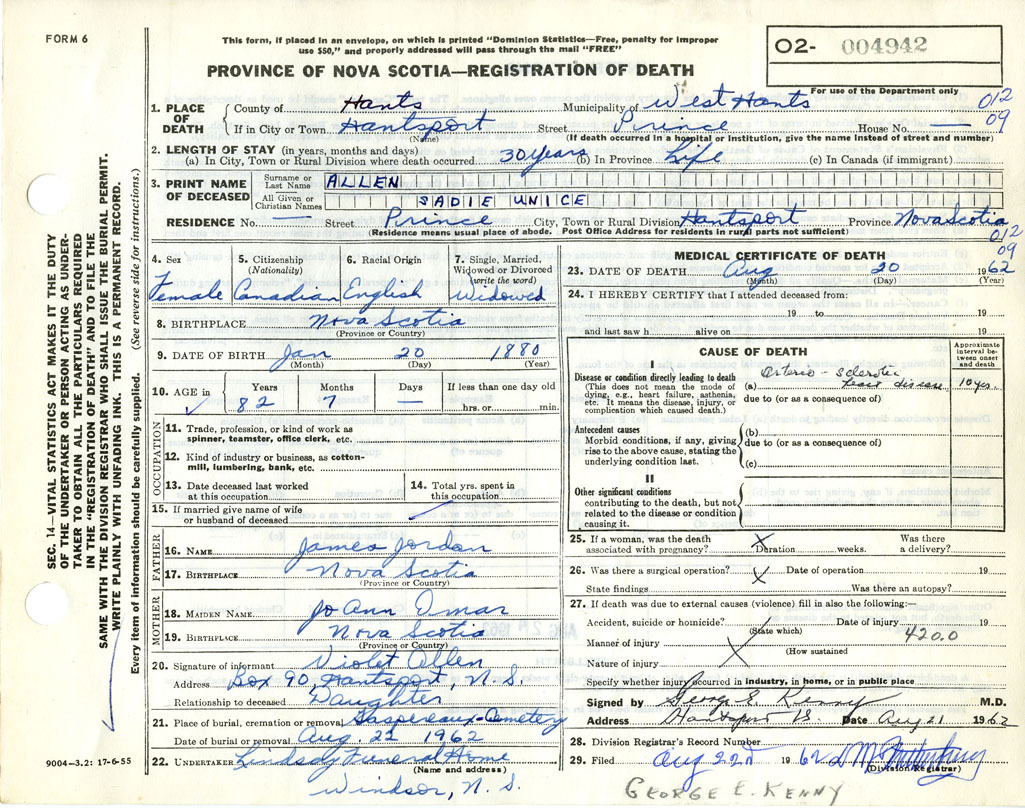 FORM 6
This form, if placed in an envelope, on which is printed "Dominion Statistics—Free, penalty for improper
use $50," and properly addressed will pass through the mail "FREE"
PROVINCE OF NOVA SCOTIA—REGISTRATION OF DEATH
02- 004942
For use of the Department only
012
09
1. PLACE OF DEATH
County of Hants Municipality of West Hants
If in City or Town Hantsport Street Prince House No. —
(Name) (If death occurred in a hospital or institution, give the name instead of street and number)
2. LENGTH OF STAY (in years, months and days)
(a) In City, Town or Rural Division where death occurred 30 years (b) In Province Life (c) In Canada (if immigrant)
3. PRINT NAME OF DECEASED
Surname or Last Name ALLEN
All Given or Christian Names SADIE UNICE
RESIDENCE No. — Street Prince City, Town or Rural Division Hantsport Province Nova Scotia
(Residence means usual place of abode. Post Office Address for residents in rural parts not sufficient)
012
09
4. Sex Female
5. Citizenship (Nationality) Canadian
6. Racial Origin English
7. Single, Married, Widowed or Divorced (write the word) Widowed
8. BIRTHPLACE Nova Scotia
(Province or Country)
9. DATE OF BIRTH Jan 20 1880
(Month) (Day) (Year)
10. AGE in Years 82 Months 7 Days — If less than one day old hrs. or min.
OCCUPATION
11. Trade, profession, or kind of work as
spinner, teamster, office clerk, etc.
12. Kind of industry or business, as cotton-
mill, lumbering, bank, etc.
13. Date deceased last worked
at this occupation
14. Total yrs. spent in
this occupation
15. If married give name of wife
or husband of deceased
FATHER
16. NAME James Jordan
17. BIRTHPLACE Nova Scotia
(Province or Country)
MOTHER
18. MAIDEN NAME Jo Ann Omar
19. BIRTHPLACE Nova Scotia
(Province or Country)
20. Signature of informant Violet Allen
Address Box 90, Hantsport, N.S.
Relationship to deceased Daughter
21. Place of burial, cremation or removal Gaspereaux-Cemetery
Date of burial or removal Aug. 22 1962
22. UNDERTAKER Lindsay Funeral Home
(Name and address)
Windsor, N. S.
9004—3.2: 17-6-55
MEDICAL CERTIFICATE OF DEATH
23. DATE OF DEATH Aug 20 1962
(Month) (Day) (Year)
24. I HEREBY CERTIFY that I attended deceased from:
19 to 19
and last saw h alive on 19
CAUSE OF DEATH
Approximate interval between onset and death
I
Disease or condition directly leading to death
(This does not mean the mode of
dying, e.g., heart failure, asthenia,
etc. It means the disease, injury, or
complication which caused death.)
(a) Arterio-sclerotic heart disease 10 yrs.
due to (or as a consequence of)
Antecedent causes
Morbid conditions, if any, giving
rise to the above cause, stating the
underlying condition last.
(b)
due to (or as a consequence of)
(c)
II
Other significant conditions
contributing to the death, but not
related to the disease or condition
causing it.
25. If a woman, was the death
associated with pregnancy? X Duration weeks. Was there
a delivery?
26. Was there a surgical operation? X Date of operation 19
State findings Was there an autopsy?
27. If death was due to external causes (violence) fill in also the following:—
Accident, suicide or homicide? Date of injury 19
(State which) 420.0
Manner of injury
(How sustained
Nature of injury
Specify whether injury occurred in industry, in home, or in public place
Signed by George E. Kenny M.D.
Address Hantsport N.S. Date Aug 21 1962
28. Division Registrar's Record Number
29. Filed Aug 22nd 1962
(Division Registrar)
GEORGE E. KENNY
SEC. 14—VITAL STATISTICS ACT MAKES IT THE DUTY
OF THE UNDERTAKER OR PERSON ACTING AS UNDER-
TAKER TO OBTAIN ALL THE PARTICULARS REQUIRED
IN THE "REGISTRATION OF DEATH" AND TO FILE THE
SAME WITH THE DIVISION REGISTRAR WHO SHALL ISSUE THE BURIAL PERMIT.
WRITE PLAINLY WITH UNFADING INK. THIS IS A PERMANENT RECORD.
Every item of information should be carefully supplied. (See reverse for instructions.)